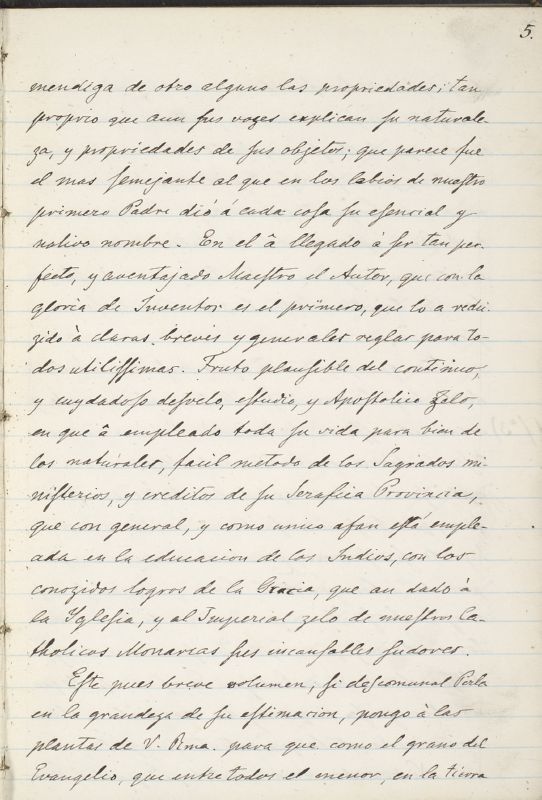 5.
mendiga de otro alguno las propriedades; tan
proprio que aun sus vozes explican su naturale
za, y propriedades de sus objetos; que parece fue
el mas semejante al que en los labios de nuestro
primero Padre dió á cada cosa su esencial y
nativo nombre. En el â llegado à ser tan per-
fecto, y aventajado Maestro el Autor, que con la
gloria de Inventor es el primero, que lo a redu-
zido à claras, breves y generales reglas para to-
dos utilissimas. Fruto plausible del continuo,
y cuydadoso desvelo, estudio, y Apostolico Zelo,
en que â empleado toda su vida para bien de
los naturales, facil metodo de los Sagrados mi
nisterios, y creditos de su Serafica Provincia,
que con general, y como unico afan està emple-
ada en la educacion de los Indios, con los
conozidos logros de la Gracia, que au dado à
la Yglesia, y al Imperial zelo de nuestros Ca-
tholicos Monarcas sus incansables sudores.
Este pues breve volumen, si descomunal Perla
en la grandeza de su estimacion, pongo à las
plantas de V. Rma. para que como el grano del
Evangelio, que entre todos el menor, en la tierra